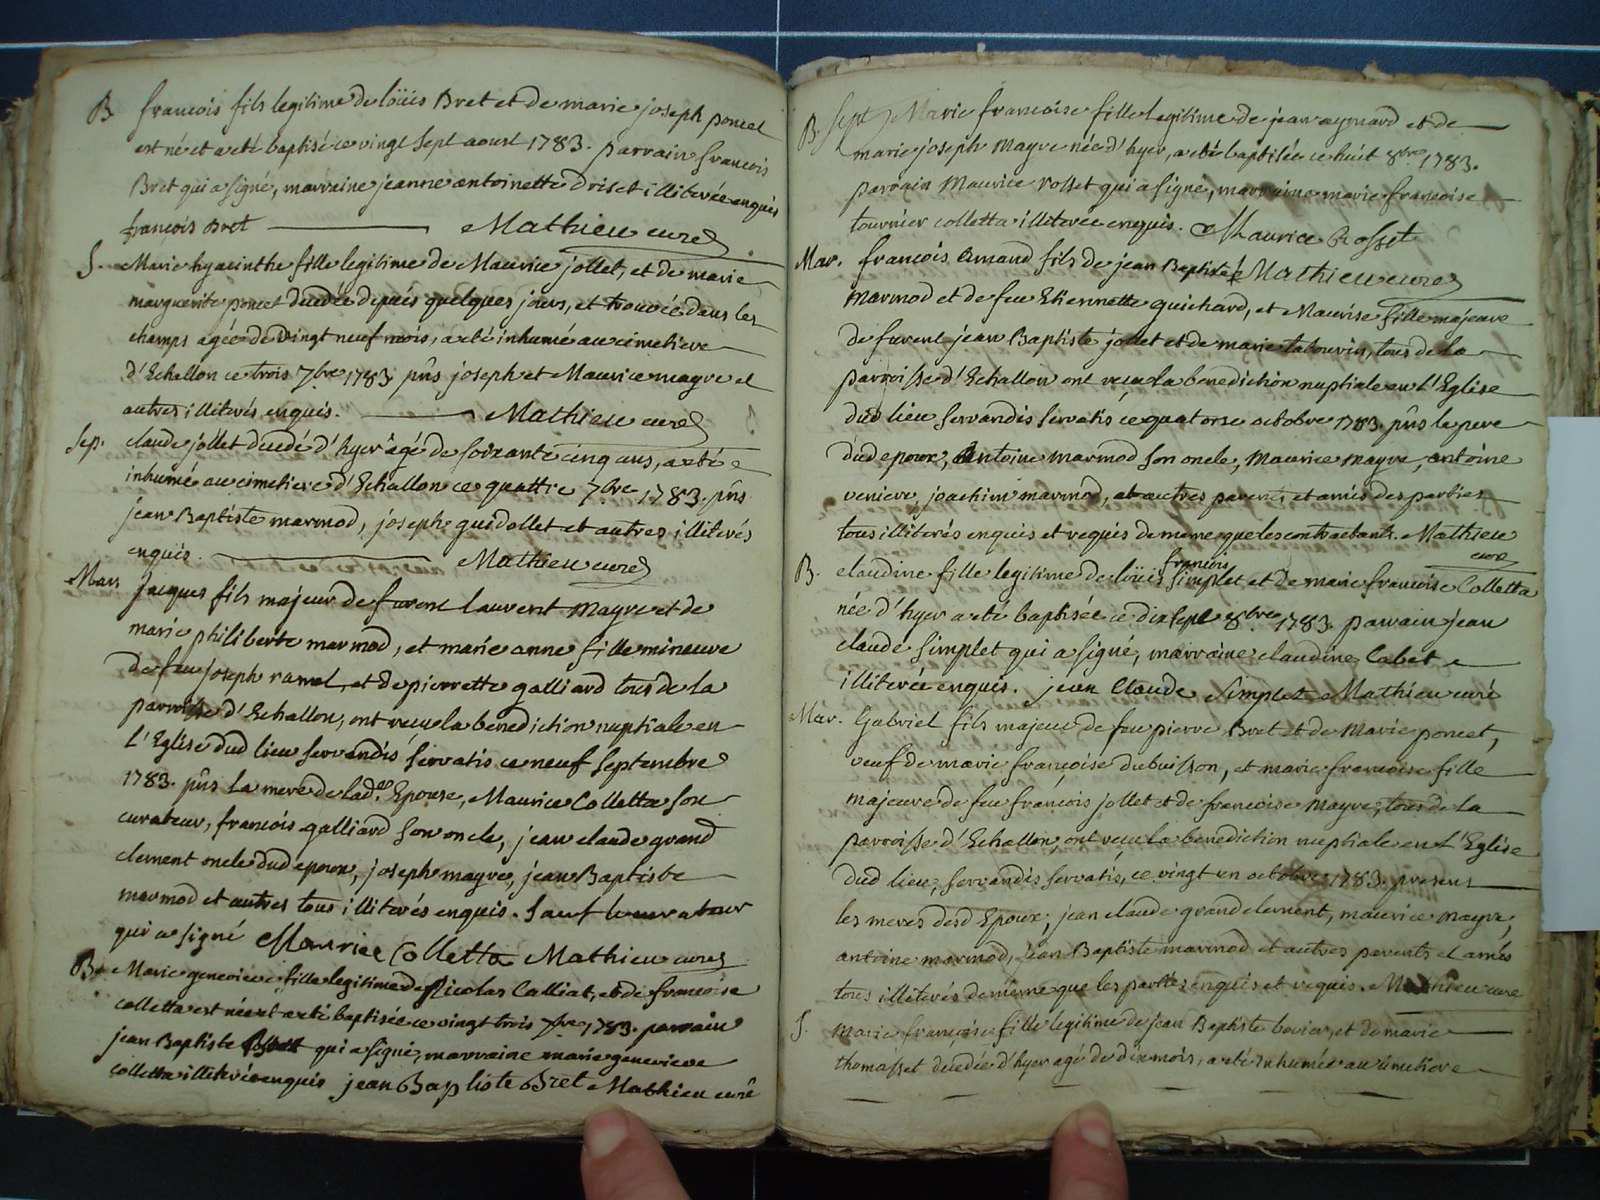 B françois fils legitime de loüis Bret et de marie joseph poncet
est né et a eté baptisé ce vingt sept aoust 1783. parrain françois
Bret qui a signé, marraine jeanne antoinette driset illiterée enquis
françois Bret Mathieu curé
S. Marie hyacinthe fille legitime de Maurice jollet, et de marie
marguerite poncet decedée depuis quelques jours, et trouvée dans les
champs agée de vingt neuf mois, a eté inhumé au cimetiere
d'Echallon ce trois 7bre 1783. pńs joseph et Maurice mayre et
autres illiterés enquis. Mathieu curé
Sep. claude jollet decedé d'hyer âgé de soixante cinq ans, a eté
inhumé au cimetiere d'Echallon ce quattre 7bre 1783. pńs
jean Baptiste marmod, joseph guidollet et autres illiterés
enquis. Mathieu curé
Mar. Jacques fils majeur de furent laurent Mayre et de
marie philiberte marmod, et marie anne fille mineure
de feu joseph ramel, et de pierrette galliard tous de la
parroisse d'Echallon, ont recu la benediction nuptiale en
L'Eglise dud lieu servandis servatis ce neuf septembre
1783. pńs la mere de lad. Epouse, Maurice Colletta son
curateur, françois galliard son oncle, jean claude grand
clement oncle dud epoux, joseph mayre, jean Baptiste
marmod et autres tous illiterés enquis. sauf le curateur
qui a signé Maurice Colletta Mathieu curé
B. Marie genevieve fille legitime de Nicolas Calliat, et de francoise
colletta est née et a eté baptisée ce vingt trois 7bre 1783. parrain
jean Baptiste qui a signé, marraine marie genevieve
colletta illiterée enquis jean Baptiste Bret Mathieu curé
B. Sept Marie francoise fille legitime de jean aymard et de
marie joseph Mayre née d'hyer, a eté baptisée ce huit 8bre 1783.
parrain Maurice rosset qui a signé, marraine marie francoise
tournier colletta illiterée enquis. Maurice Rosset
Mar. françois Amand fils de jean Baptiste Mathieu curé
Marmod et de feu Etiennette guichard, et Maurise fille majeure
de furent jean Baptiste jollet et de marie tabourin, tous de la
parroisse d'Echallon ont reçu la benediction nuptiale en L'Eglise
dud lieu servandis servatis ce quatorse octobre 1783. pńs le pere
dud epoux, Antoine marmod son oncle, Maurice mayre, antoine
veniere, joachim marmod, et autres parents et amis des parties
tous illiterés enquis et requis de meme que les contractants. Mathieu
curé
B. claudine fille legitime de loüis françois simplet et de marie francoise Colletta
née d'hyer a eté baptisée ce dix sept 8bre 1783. parrain jean
claude simplet qui a signé, marraine claudine Cabet
illiterée enquis. jean Claude simplet Mathieu curé
Mar. Gabriel fils majeur de feu pierre Bret et de Marie poncet,
veuf de marie françoise dubuisson, et marie francoise fille
majeure de feu françois jollet et de francoise mayre, tous de la
parroisse d'Echallon, ont recu la benediction nuptiale en L'Eglise
dud lieu, servandis servatis, ce vingt un octobre 1783. presens
les meres desd Epoux, jean claude grand clement, maurice mayre,
antoine marmod, jean Baptiste marmod et autres parents et amis
tous illiterés de même que les parties enquis et requis. Mathieu curé
S. Marie françoise fille legitime de jean Baptiste bovier, et de marie
thomasset decedée d'hyer agé de dix mois, a eté inhumée au cimetiere